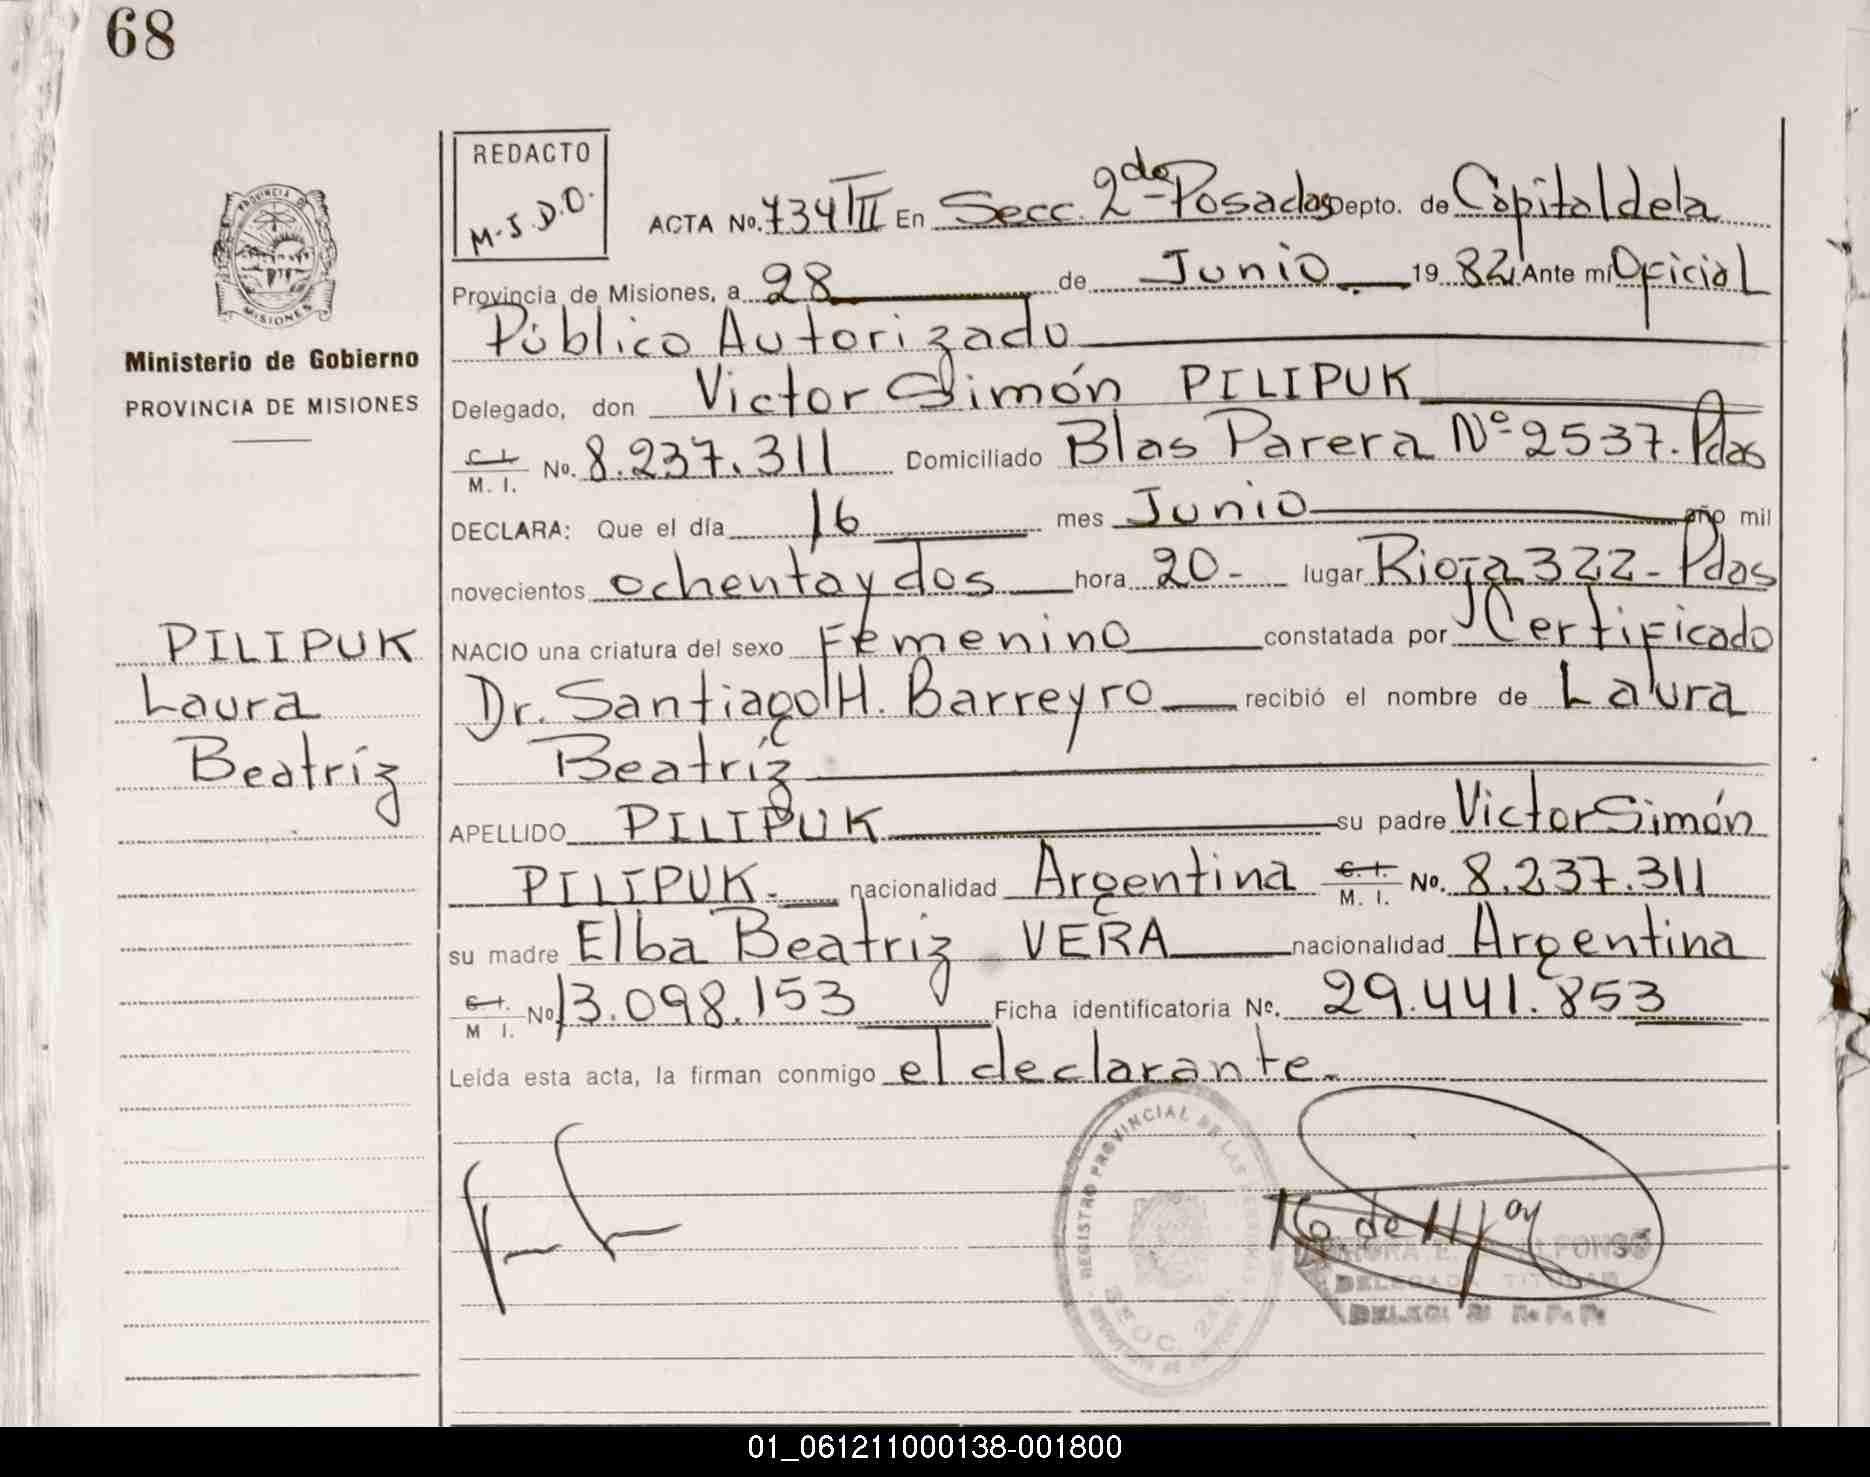 68
REDACTO
M.J.D.O.
ACTA No. 734 III En Secc. 2da Posadas Depto. de Capital de la
Provincia de Misiones, a 28 de Junio 1982 Ante mi Oficial
Público Autorizado
Delegado, don Victor Simón PILIPUK
C. I. M. I. No. 8.237.311 Domiciliado Blas Parera Nº 2537. Pdas
DECLARA: Que el día 16 mes Junio año mil
novecientos ochenta y dos hora 20- lugar Rioja 322- Pdas
NACIO una criatura del sexo Femenino constatada por Certificado
Dr. Santiago H. Barreyro recibió el nombre de Laura
Beatríz
APELLIDO PILIPUK su padre Victor Simón
PILIPUK.- nacionalidad Argentina C. I. M. I. No. 8.237.311
su madre Elba Beatriz VERA nacionalidad Argentina
C. I. M. I. No. 13.098.153 Ficha identificatoria No. 29.441.853
Leída esta acta, la firman conmigo el declarante.
PROVINCIA
MISIONES
Ministerio de Gobierno
PROVINCIA DE MISIONES
PILIPUK
Laura
Beatríz
REGISTRO PROVINCIAL DE LAS
SECC. 2da.
DELEGADA TITULAR
01_061211000138-001800